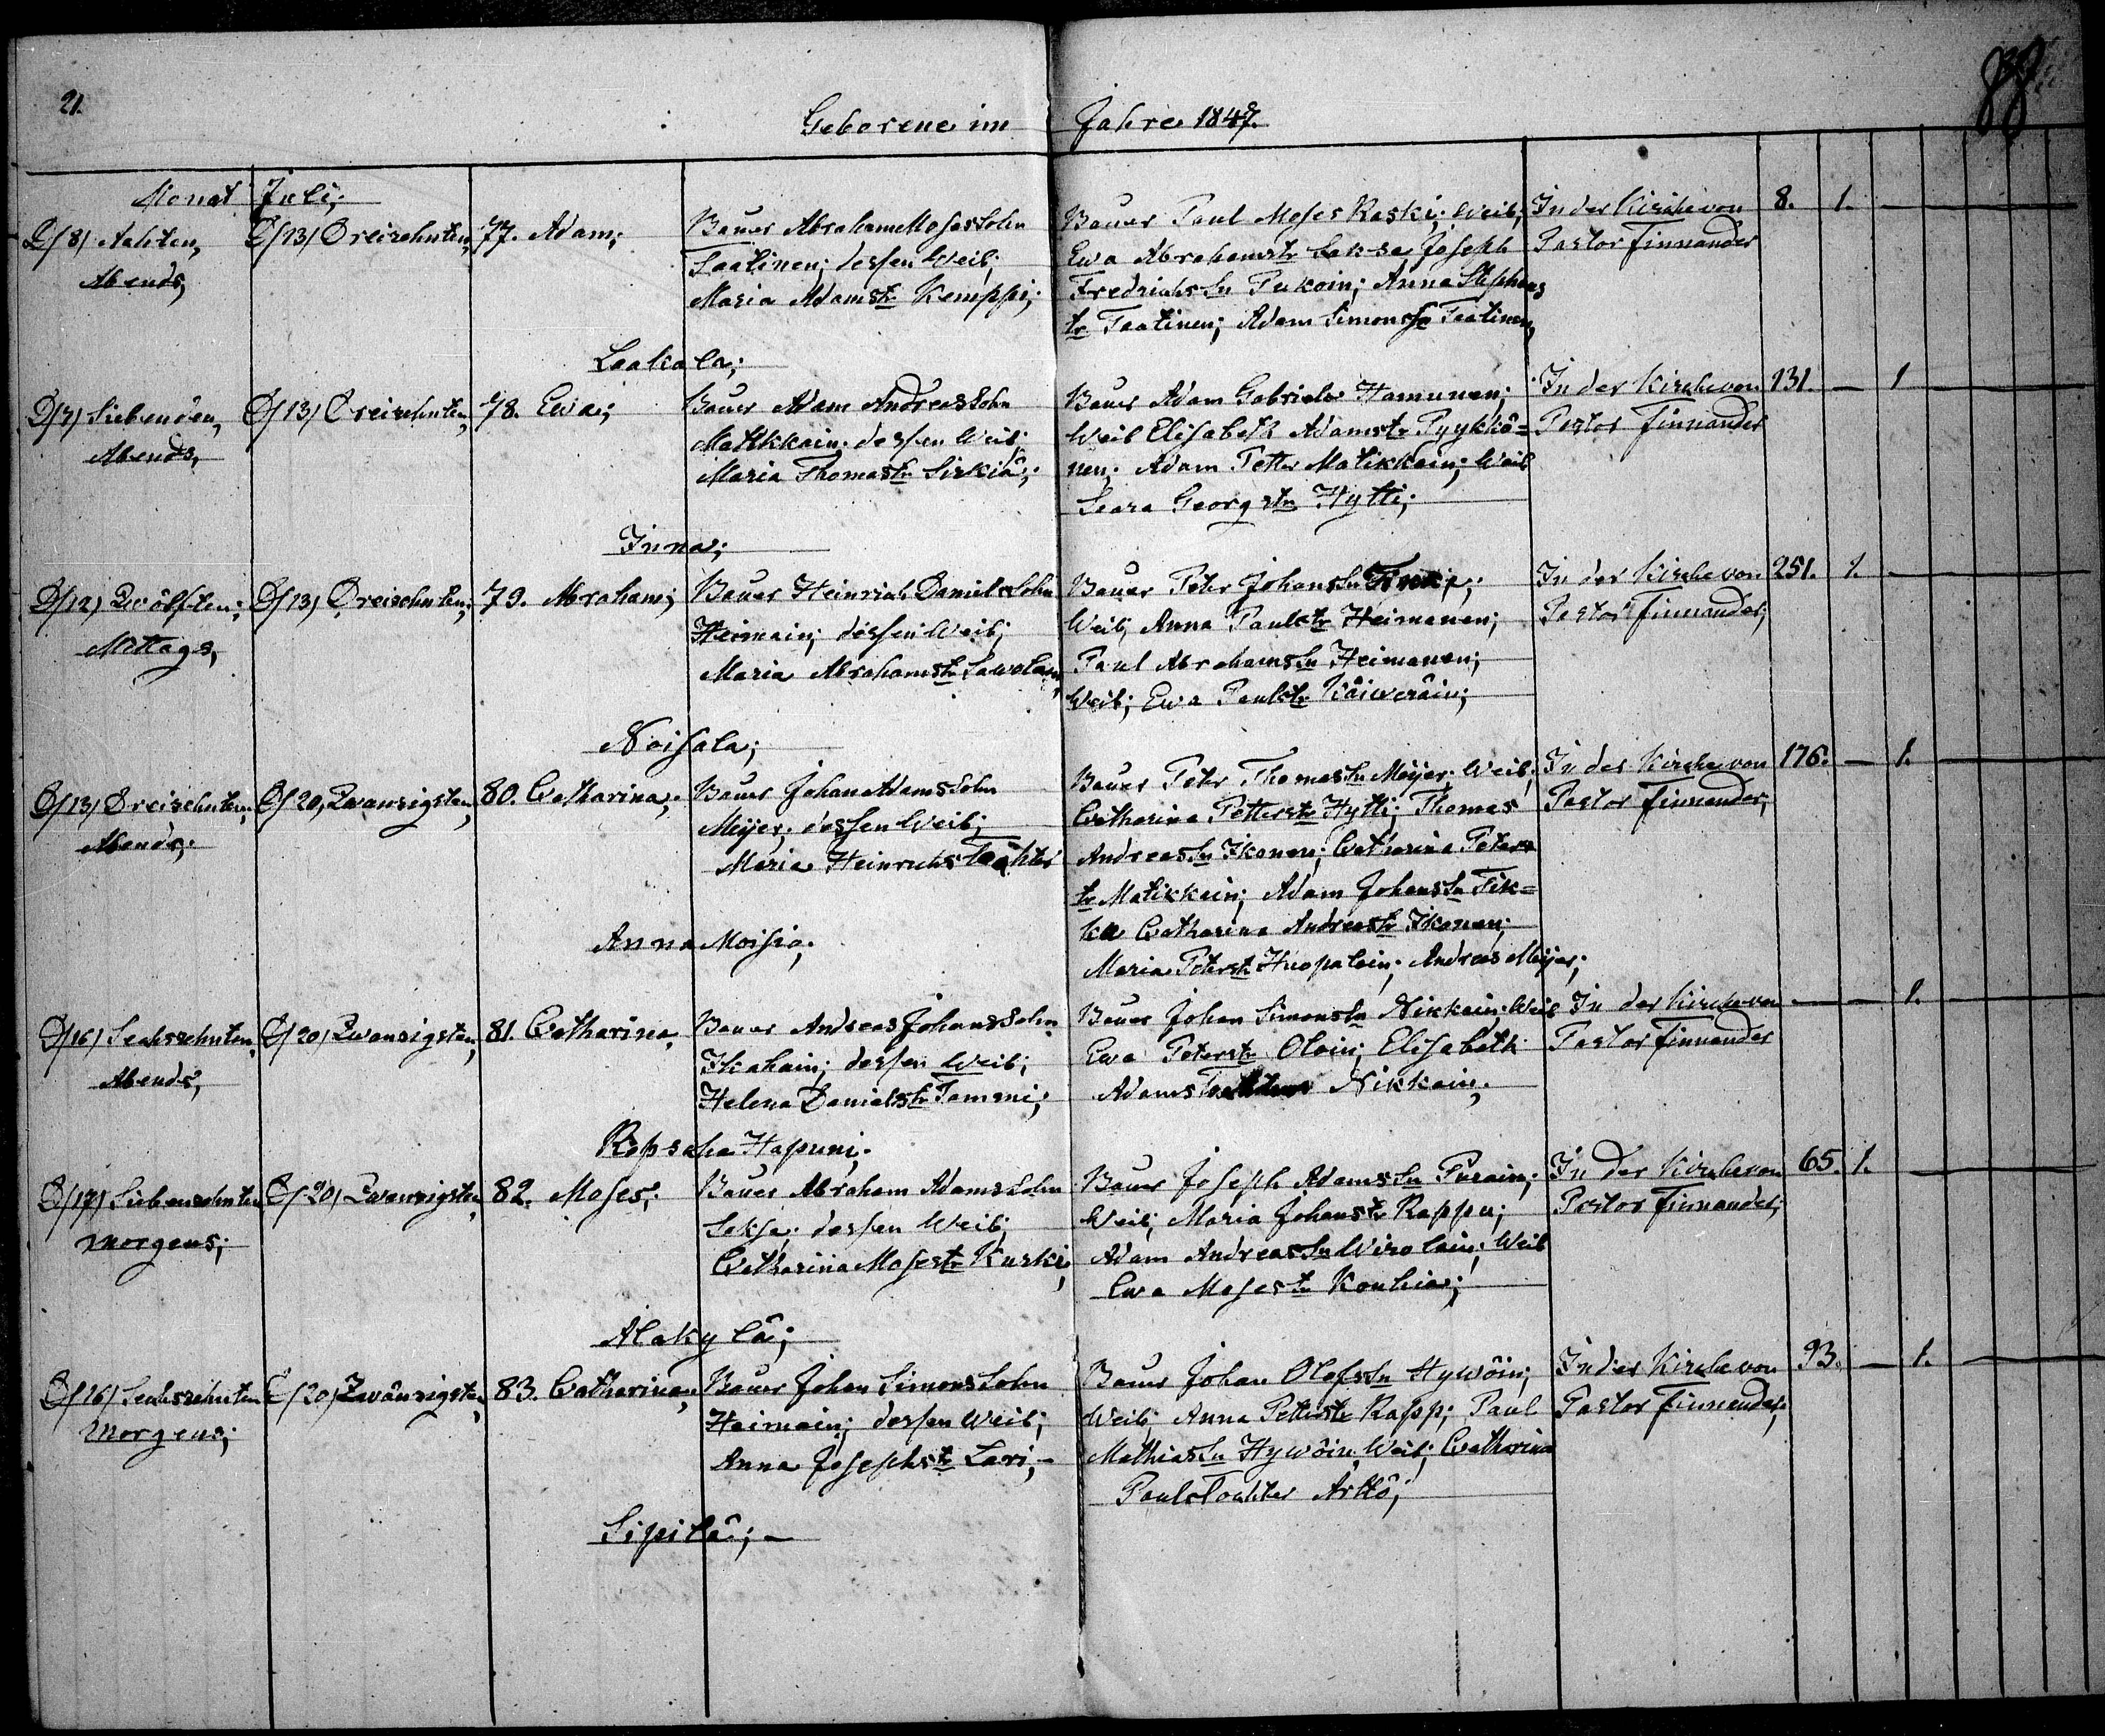 21.
88
Geborene im Jahre 1847.
Monat Juli;
D/8/ Achten,
Abends,
D/13/ Dreizehnten,
77. Adam;
Bauer Abraham Moses Sohn
Taatinen; dessen Weib;
Maria Adamstr Kemppi;
Bauer Paul Moses Raski; Weib,
Ewa Abrahamstr Seksa, Joseph
Fredrichs Sn Pukoin; Anna Stephans
tr Taatinen; Adam Simons Sn Taatinen,
In der Kirche von
Pastor Finnander
8. 1. —
Laakala;
D/7/ Siebenden,
Abends,
D/13/ Dreizehnten,
78. Ewa;
Bauer Adam Andreas Sohn
Matikkain; dessen Weib;
Maria Thomastr Sirkiä;
Bauer Adam Gabriels Hamunen;
Weib Elisabeth Adamstr Pyykkö=
nen; Adam Petter Matikkain; Weib
Seara Georgstr Hytti;
In der Kirche von
Pastor Finnander
131. — 1
Inna;
D/12/ Zwölften;
Mittags,
D/13/ Dreizehnten;
79. Abraham;
Bauer Heinrich Daniels Sohn
Heimain; dessen Weib;
Maria Abrahamstr Sawolain,
Bauer Peter Johans Sn
Weib; Anna Paulstr Heimanen;
Paul Abrahams Sn Heimanen;
Weib; Ewa Paulstr Käiweräin;
In der Kirche von
Pastor Finnander;
251. 1. —
Noisala;
D/13/ Dreizehnten,
Abends;
D/20, Zwanzigsten,
80. Catharina;
Bauer Johan Adams Sohn
Meijer; dessen Weib;
Maria Heinrichs Tochter
Bauer Peter Thomas Sn Meijer; Weib,
Catharina Petterstr Hytti; Thomas
Andreas Sn Ikonen; Catharina Peters
tr Matikkain; Adam Johans Sn Tik=
ka Catharina Andreastr Ikonen;
Maria Peterstr Huopalain; Andreas Meijer;
In der Kirche von
Pastor Finnander;
176. — 1.
Anna Moisio;
D/16/ Sechszehnten,
Abends,
D/20/ Zwanzigsten,
81. Catharina,
Bauer Andreas Johans Sohn
Ikahain; dessen Weib;
Helena Danielstr Tammi;
Bauer Johan Simons Sn Nikkain; Weib
Ewa Peterstr Oloin; Elisabeth
Adams Tochter Nikkain;
In der Kirche von
Pastor Finnander
— — 1.
Hapuni;
D/17/ Siebenzehnten
Morgens;
D/20/ Zwanzigsten,
82. Moses;
Bauer Abraham Adams Sohn
Seksa; dessen Weib;
Catharina Mosestr Kurki;
Bauer Joseph Adams Sn Purain;
Weib; Maria Johanstr Rappu;
Adam Andreas Sn Wirolain; Weib
Ewa Moses tr Kouhia;
In der Kirche von
Pastor Finnander;
65. 1. —
Alakylä;
D/16/ Sechszehnten
Morgens;
D/20/ Zwänzigsten,
83. Catharina,
Bauer Johan Simons Sohn
Heimain; dessen Weib;
Anna Josephstr Lari;—
Bauer Johan Olofs Sn Hywöin;
Weib; Anna Petterstr Rapp; Paul
Mathias Sn Hywöin, Weib; Catharina
Pauls Tochter Arttö;
In der Kirche von
Pastor Finnander;
93. — 1.
Sipilä; —